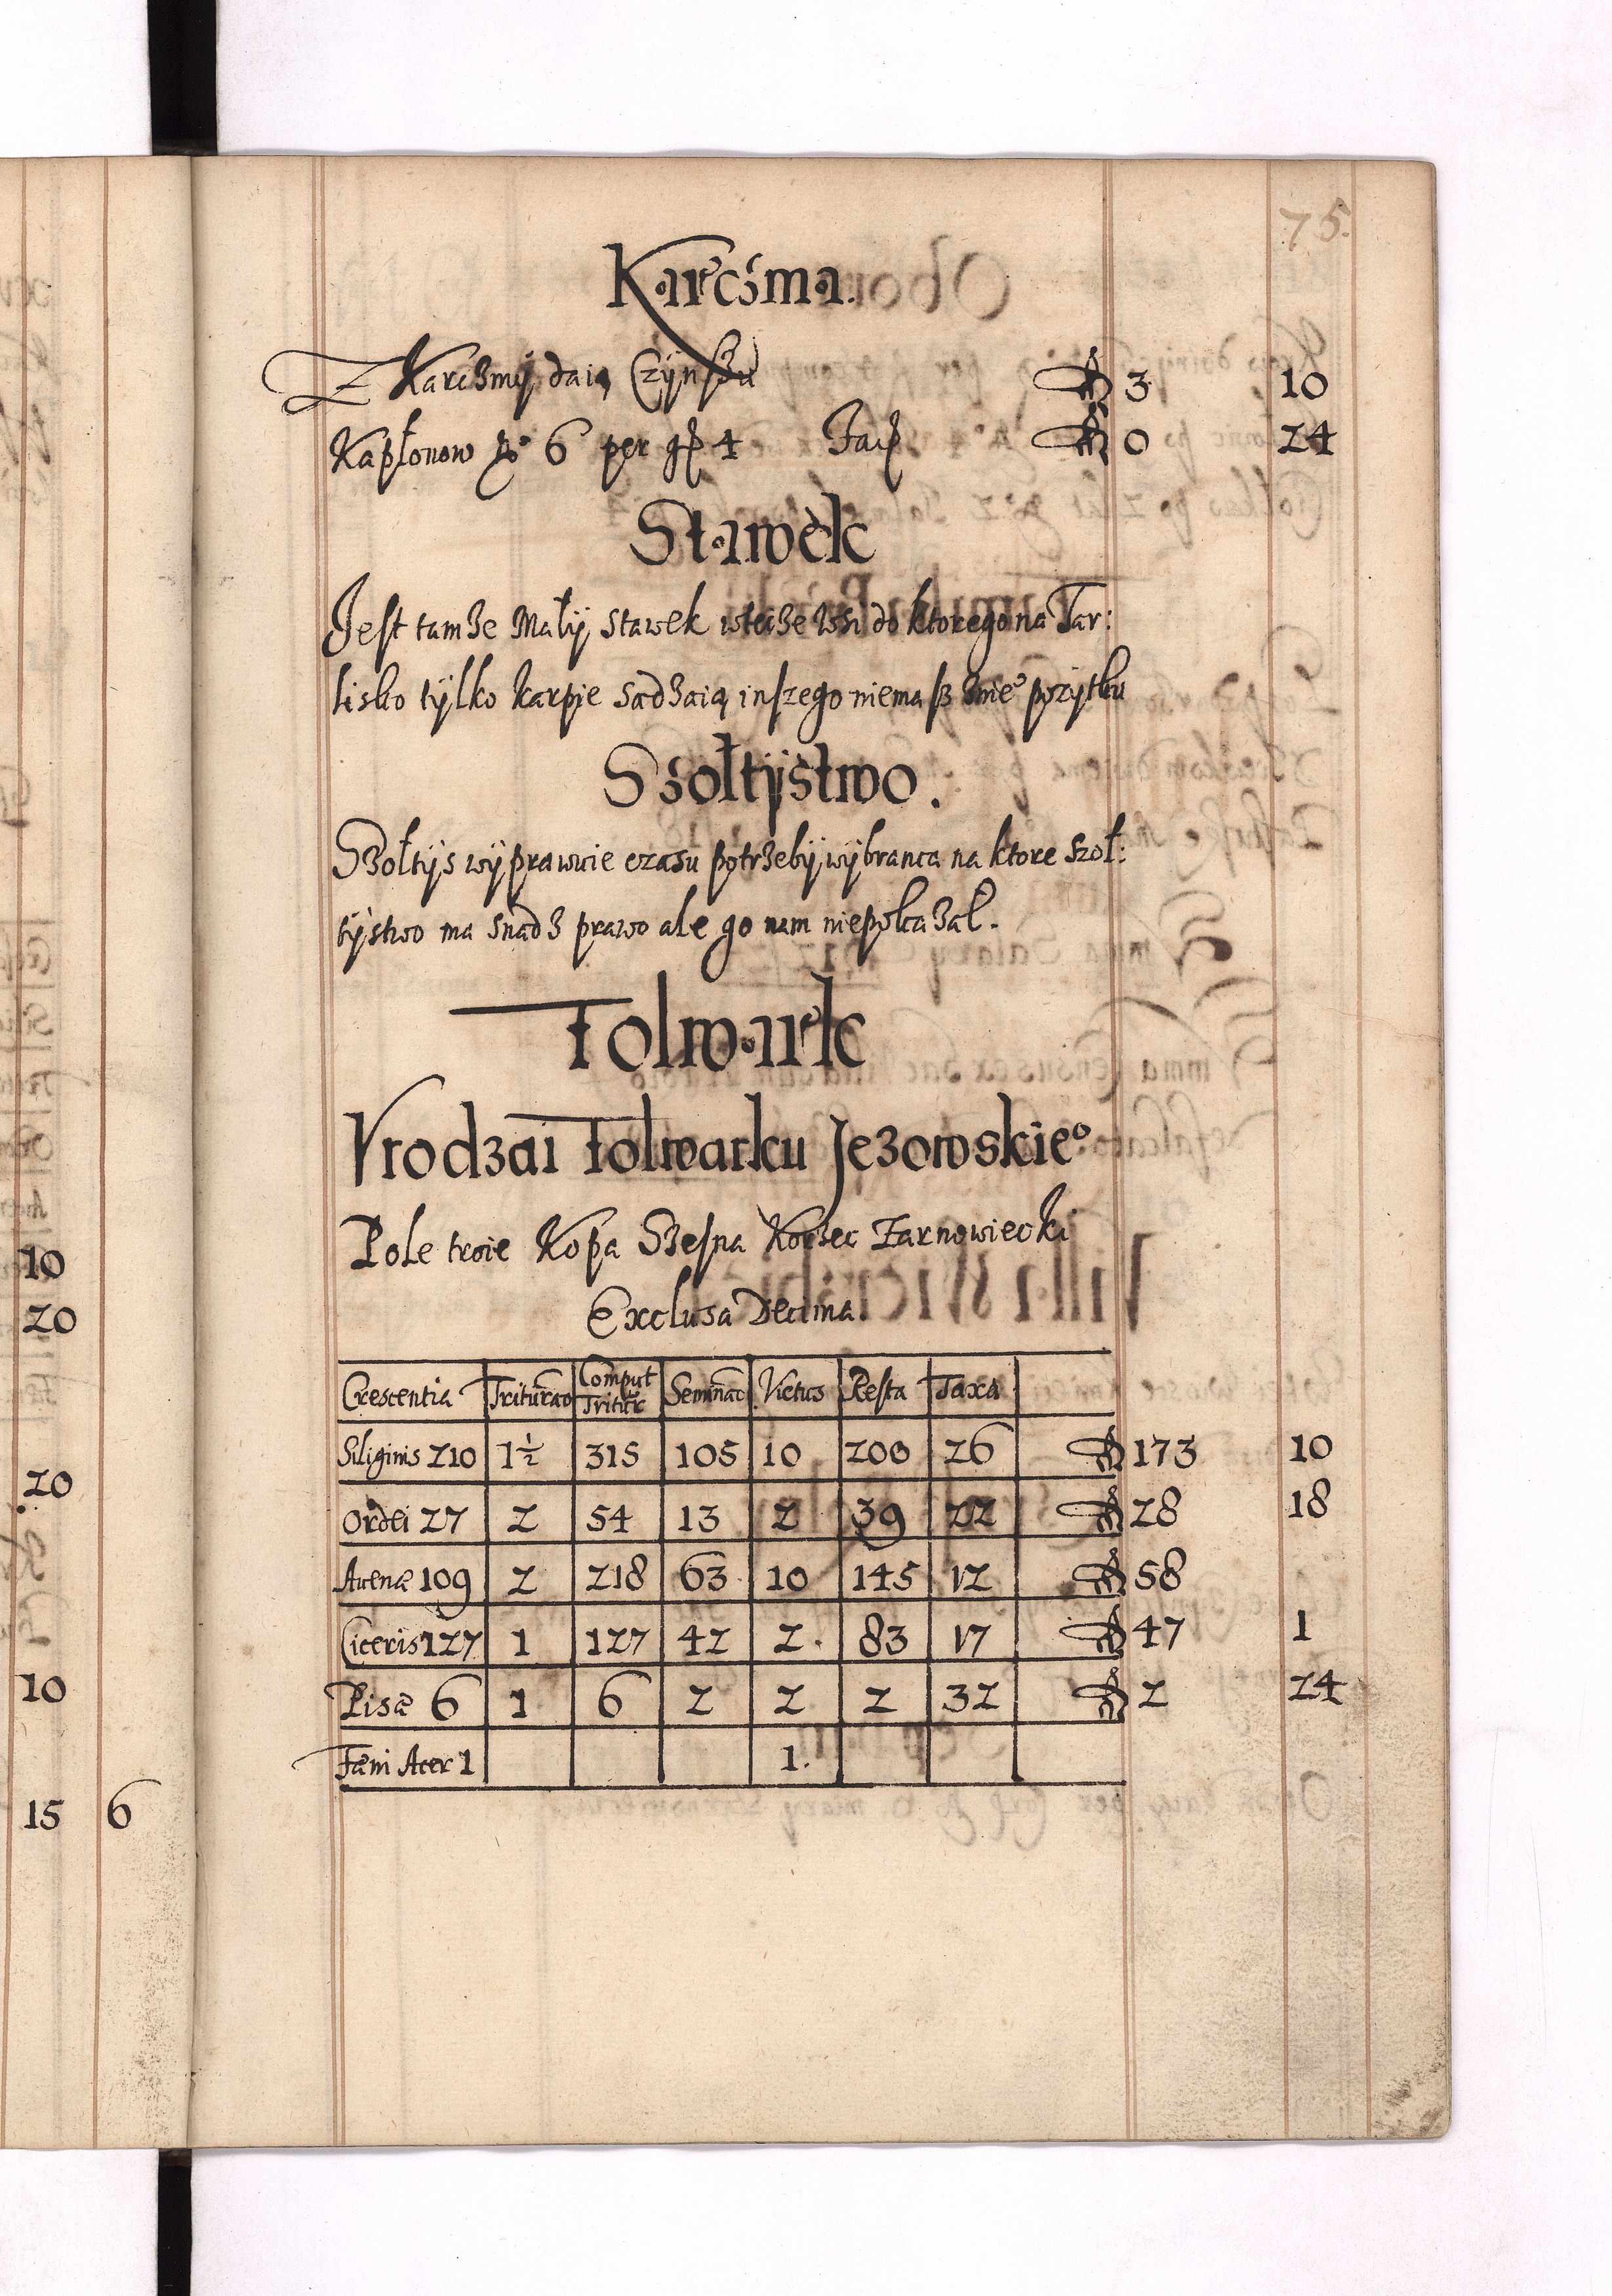 75.
Karczma.
Z Karczmÿ daią Czÿnszu fl 3 10
Kapłonow No 6 per gr 4 Facit fl 0 24
Stawek
Jest tamze Małÿ stawek wteize wsi do ktorego na Tar:
lisko tÿlko karpie sadzaią inszego niemasz znieo pozÿtku
Szołtÿstwo.
Szołtÿs wÿprawuie czasu potrzebÿ wÿbranca na ktore szoł:
tÿstwo ma snadz prawo ale go nam niepokazał.
Folwark
Vrodzai Folwarku Jezowskieo
Pole troie Kopa Szesna Korzec Zarnowiecki
Exclusa Decima.
Crescentia Triturao Comput Tritur Seminao Victus Resta Taxa
Siliginis 210 1½ 315 105 10 200 26 fl 173 10
Ordei 27 2 54 13 2 39 22 fl 28 18
Avenæ 109 2 218 63 10 145 12 fl 58
Ciceris 127 1 127 42 2. 83 17 fl 47 1
Pisæ 6 1 6 2 2 2 32 fl 2 24
Fæni Acer 1 1.
10
20
20
10
15 6